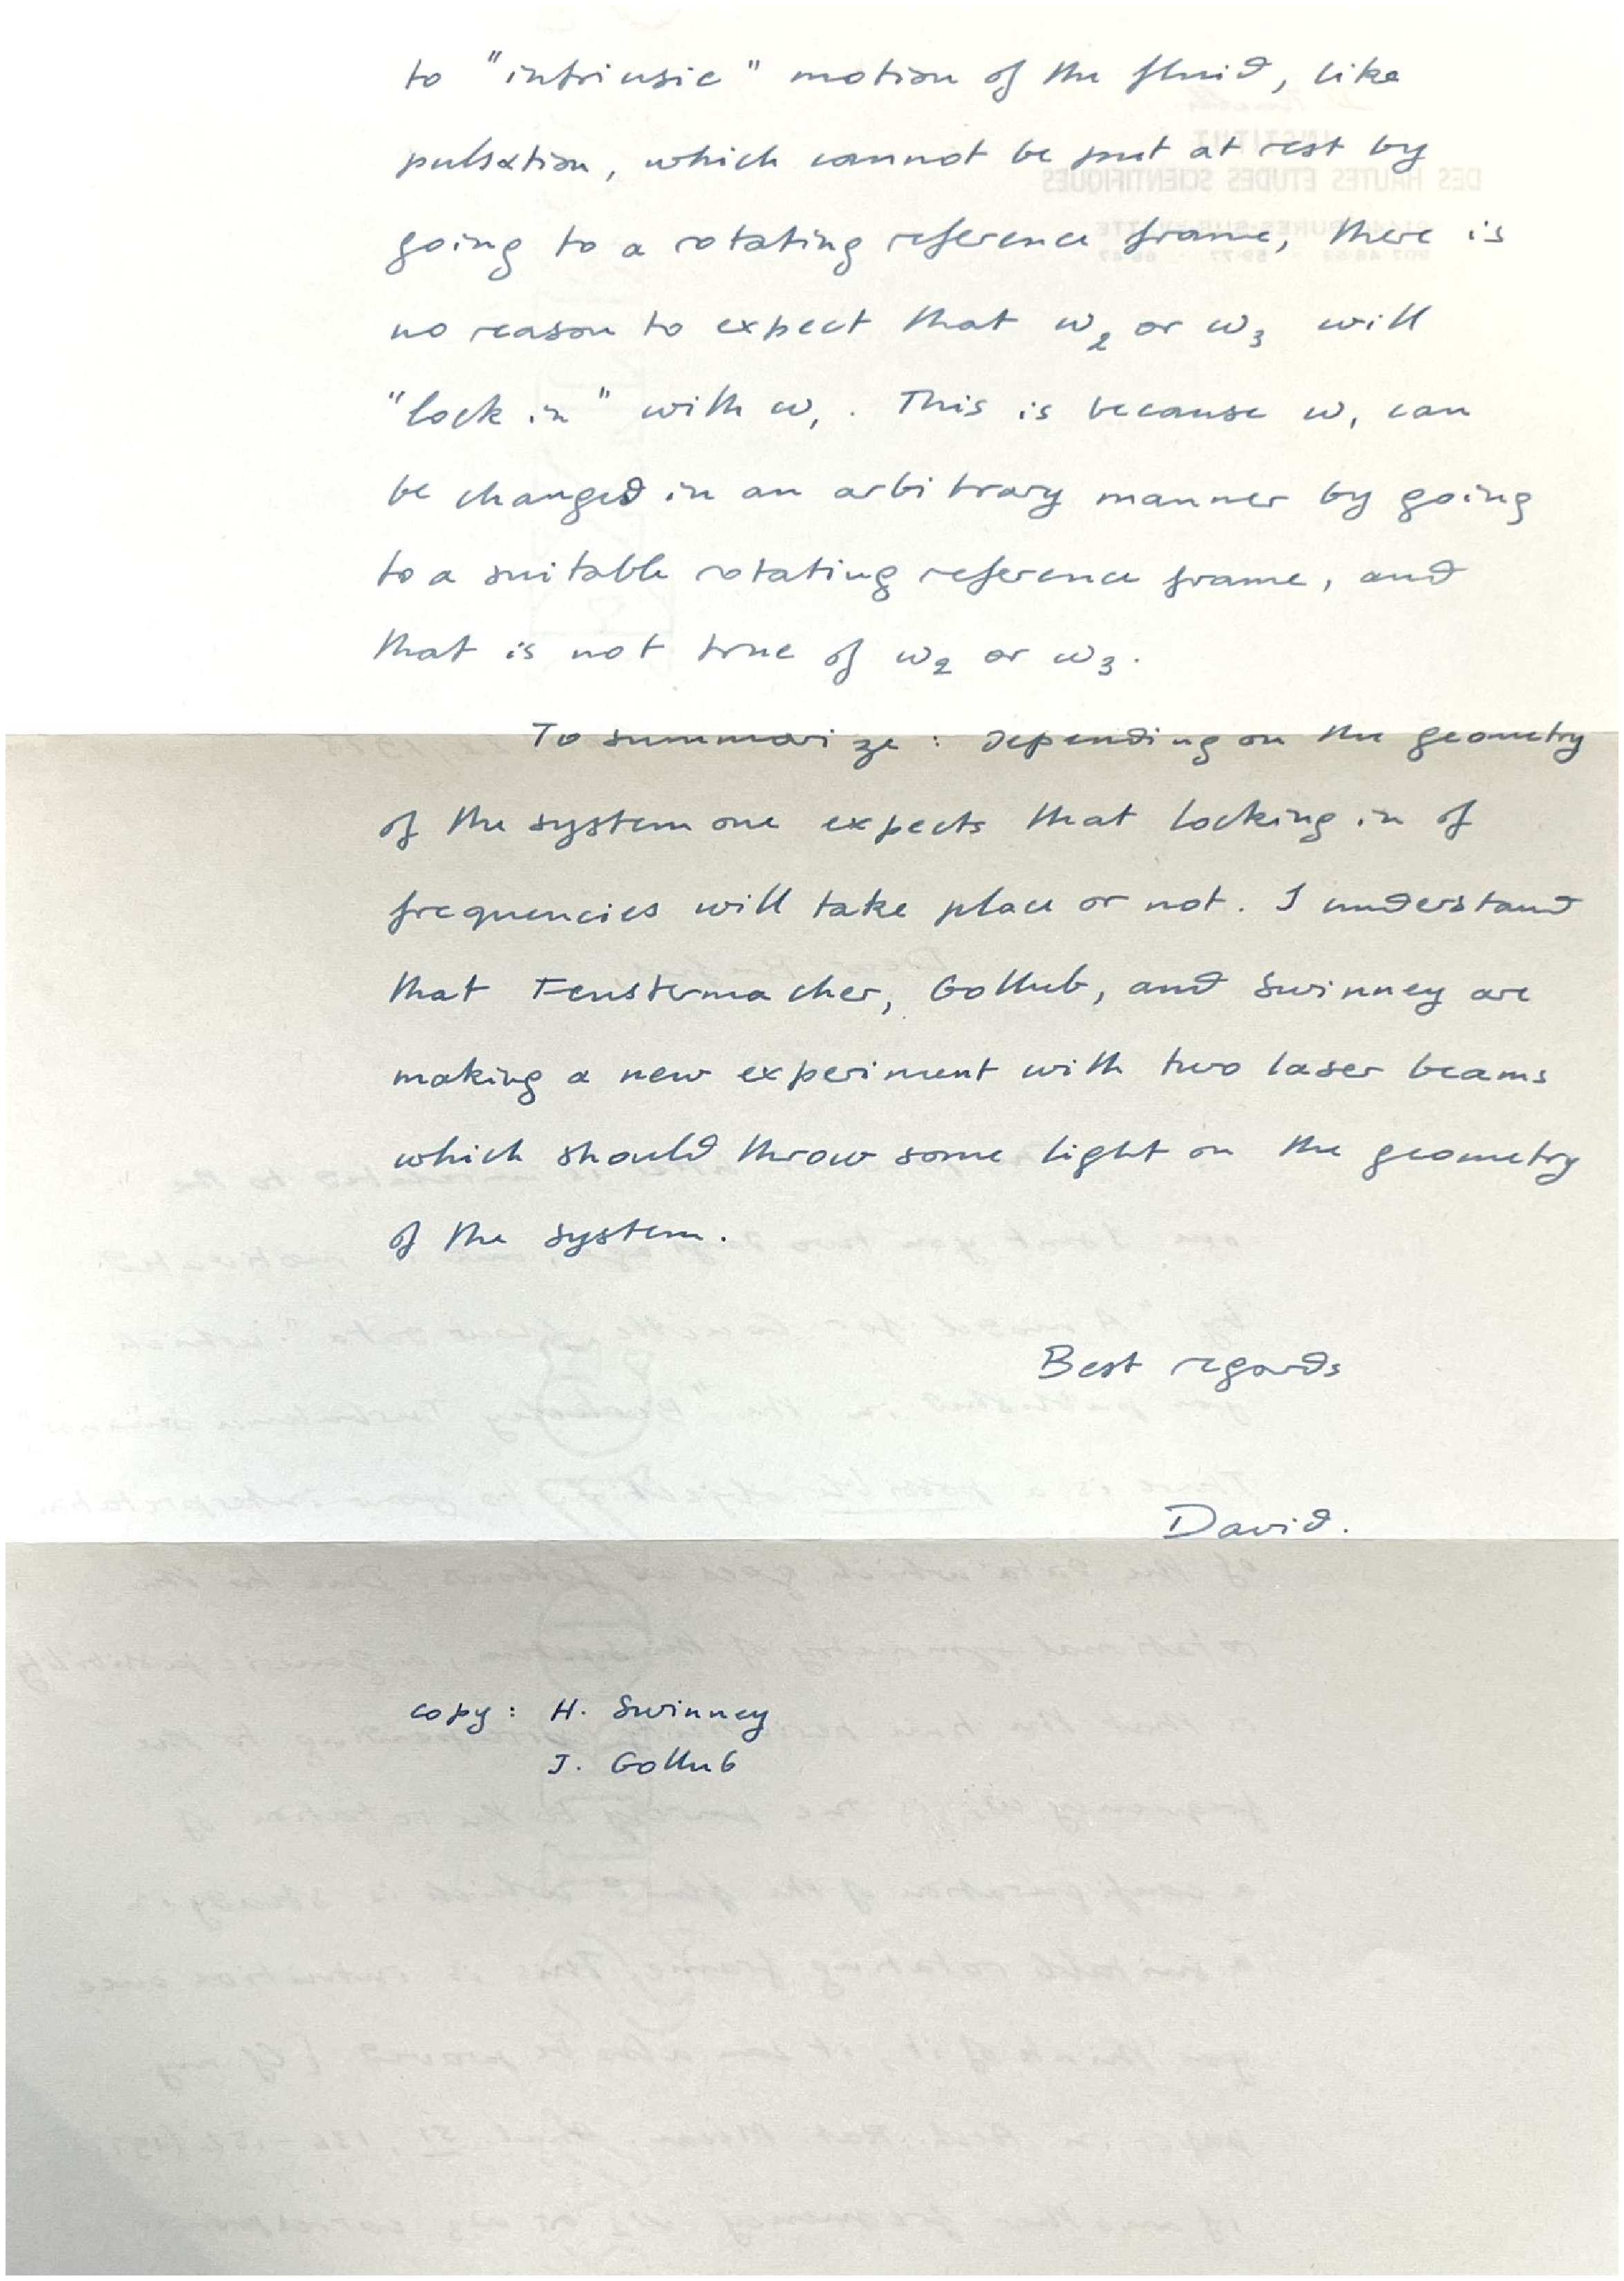 to "intrinsic" motion of the fluid, like
pulsation, which cannot be put at rest by
going to a rotating reference frame, there is
no reason to expect that ω₂ or ω₃ will
"lock in" with ω₁. This is because ω₁ can
be changed in an arbitrary manner by going
to a suitable rotating reference frame, and
that is not true of ω₂ or ω₃.
To summarize: depending on the geometry
of the system one expects that locking in of
frequencies will take place or not. I understand
that Fenstermacher, Gollub, and Swinney are
making a new experiment with two laser beams
which should throw some light on the geometry
of the system.
Best regards
David.
copy: H. Swinney
J. Gollub